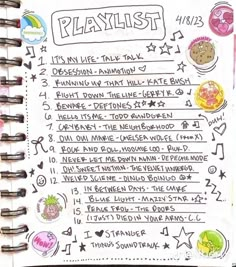 PLAYLIST
4/8/23
1. IT'S MY LIFE - TALK TALK
2. OBSESSION - ANIMOTION
3. RUNNING UP THAT HILL - KATE BUSH
4. RIGHT DOWN THE LINE - GERRY R.
5. BEWARE - DEFTONES
6. HELLO ITS ME - TODD RUNDGREN
7. CRYBABY - THE NEIGHBORHOOD
8. OUI OUI MARIE - CHELSEA WOLFE (FROM X)
9. ROCK AND ROLL, HOOCHIE COO - RICK D.
10. NEVER LET ME DOWN AGAIN - DEPECHE MODE
11. OH! SWEET NOTHIN - THE VELVET UNDERGR.
12. WEIRD SCIENCE - OINGO BOINGO
13. IN BETWEEN DAYS - THE CURE
14. BLUE LIGHT - MAZZY STAR
15. PEACE FROG - THE DOORS
16. (I JUST) DIED IN YOUR ARMS - C.C
I STRANGER
THINGS SOUNDTRACK